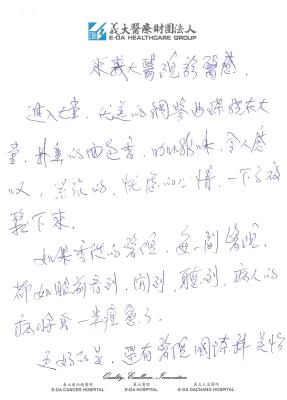 義大醫療財團法人
E-DA HEALTHCARE GROUP
來義大醫院診醫感.
進入大堂, 优差的鋼琴曲環繞在大
堂, 扑鼻的面包香, 的咖啡味, 令人感
叹, 紧張的, 忧虑的心情, 一下子放
鬆下來.
如果香港的醫院, 每一間醫院,
都如眼前看到, 聞到, 聽到, 病人的
病情會一半痊愈了.
更好的是, 還有醫院國際科美怡
Quality, Excellence, Innovation
義大癌治療醫院
E-DA CANCER HOSPITAL
義大醫院
E-DA HOSPITAL
義大大昌醫院
E-DA DACHANG HOSPITAL